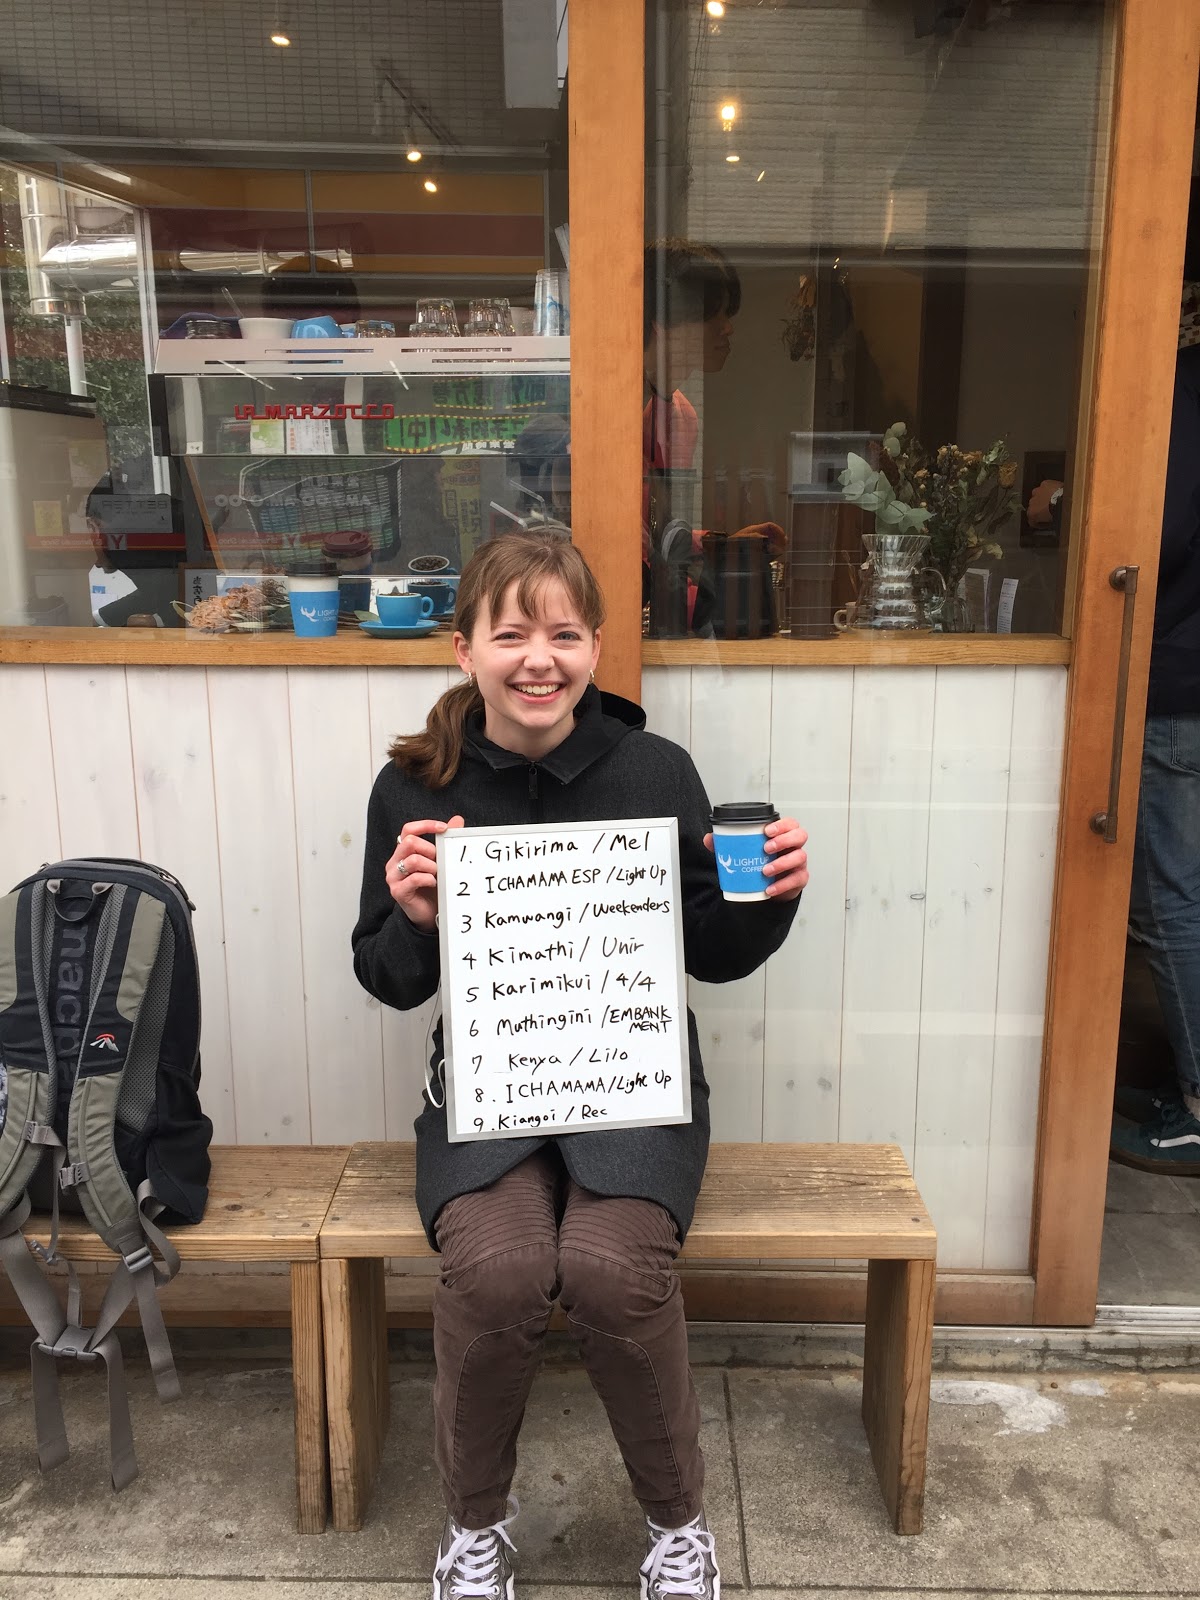 LA MARZOCCO
LIGHT UP
1. Gikirima / Mel
2 ICHAMAMA ESP / Light Up
3 Kamwangi / Weekenders
4 Kimathi / Unir
5 Karimikui / 4/4
6 Muthingini / EMBANK
MENT
7 Kenya / Lilo
8. ICHAMAMA / Light Up
9. Kiangoi / Rec
LIGHT UP
COFFEE
macpac